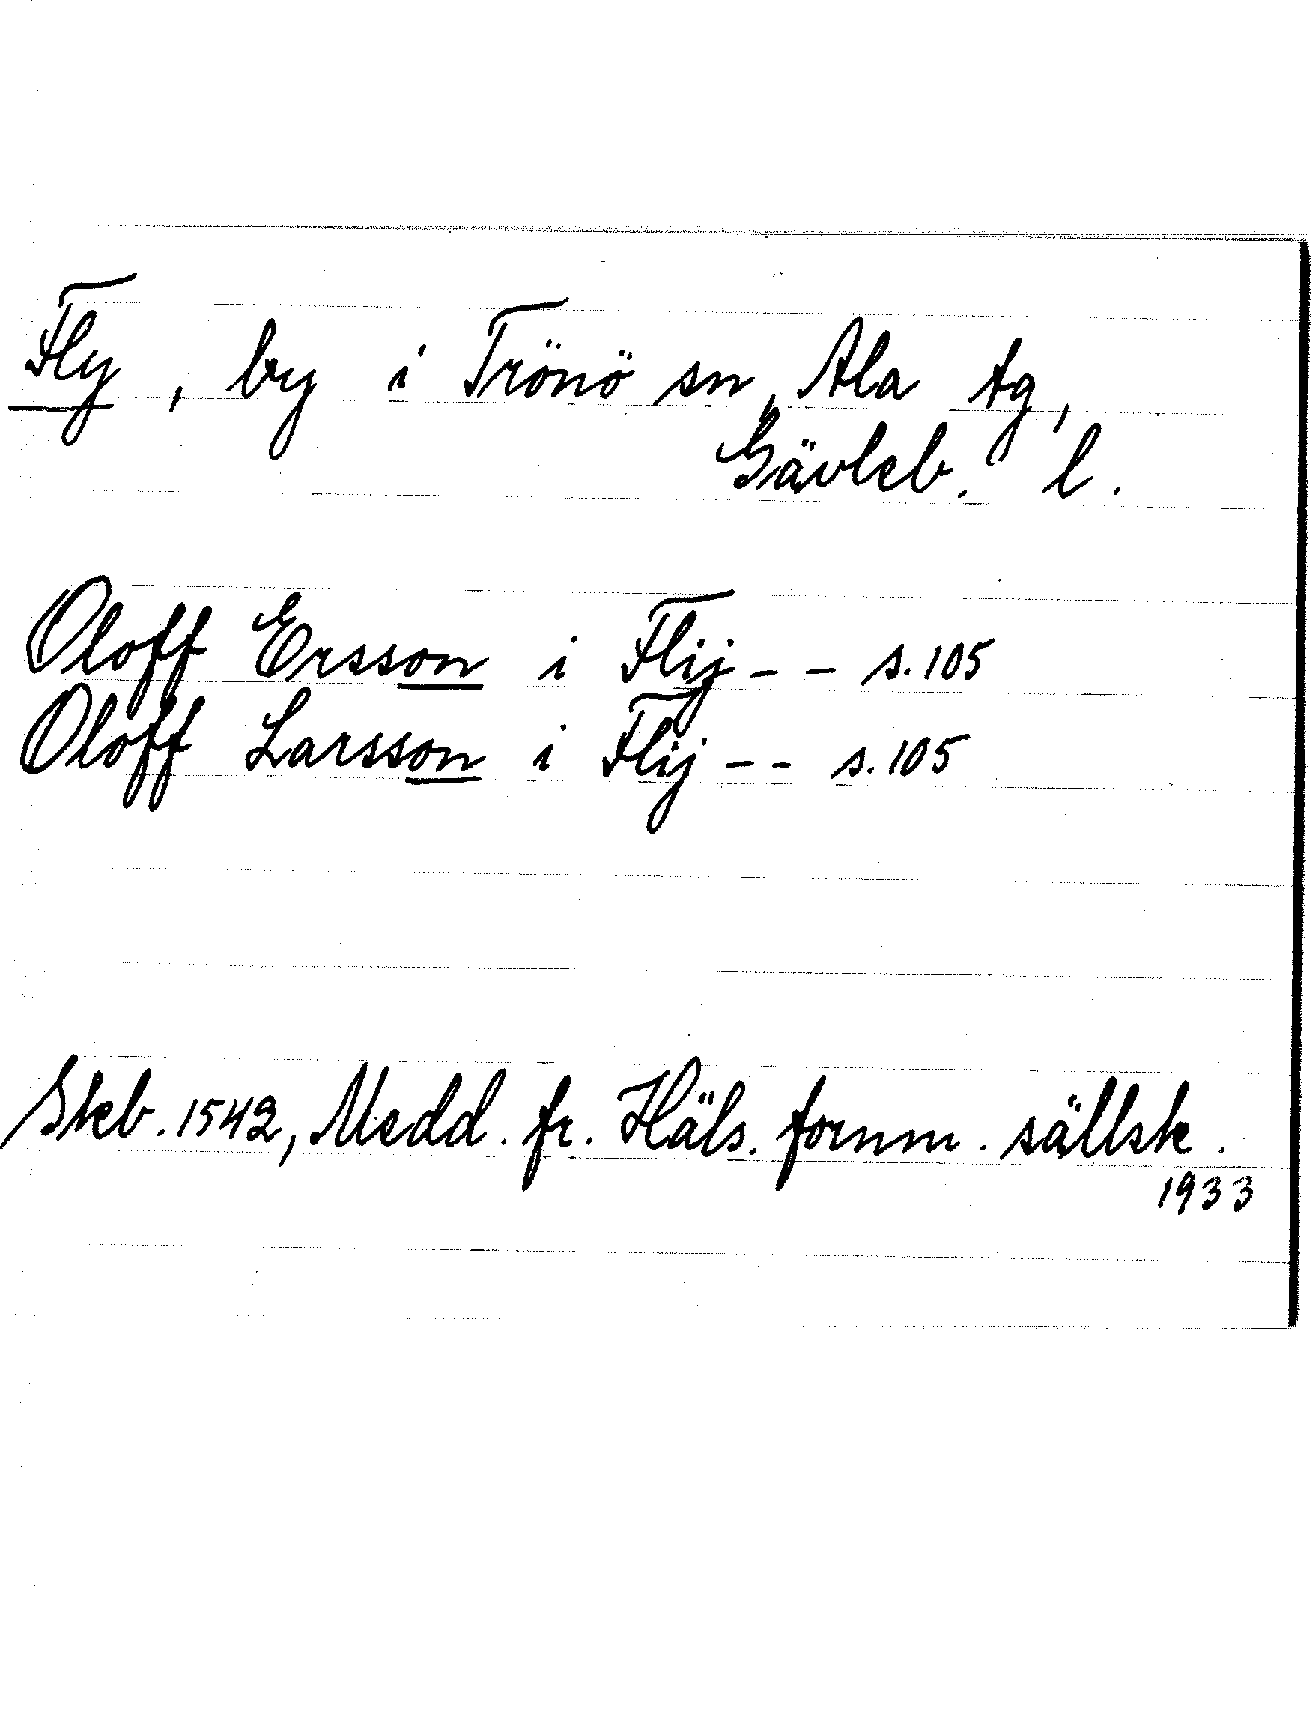 Fly, by i Trönö sn, Ala tg,
Gävleb. l.
Oloff Ersson i Flij -- s. 105
Oloff Larsson i Flij -- s. 105
Skb. 1542, Medd. fr. Häls. fornm. sällsk.
1933